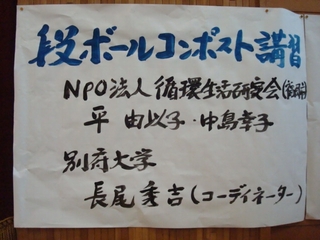 段ボールコンポスト講習
NPO法人循環生活研究会(福岡市)
平 由以子・中島幸子
別府大学
長尾秀吉(コーディネーター)